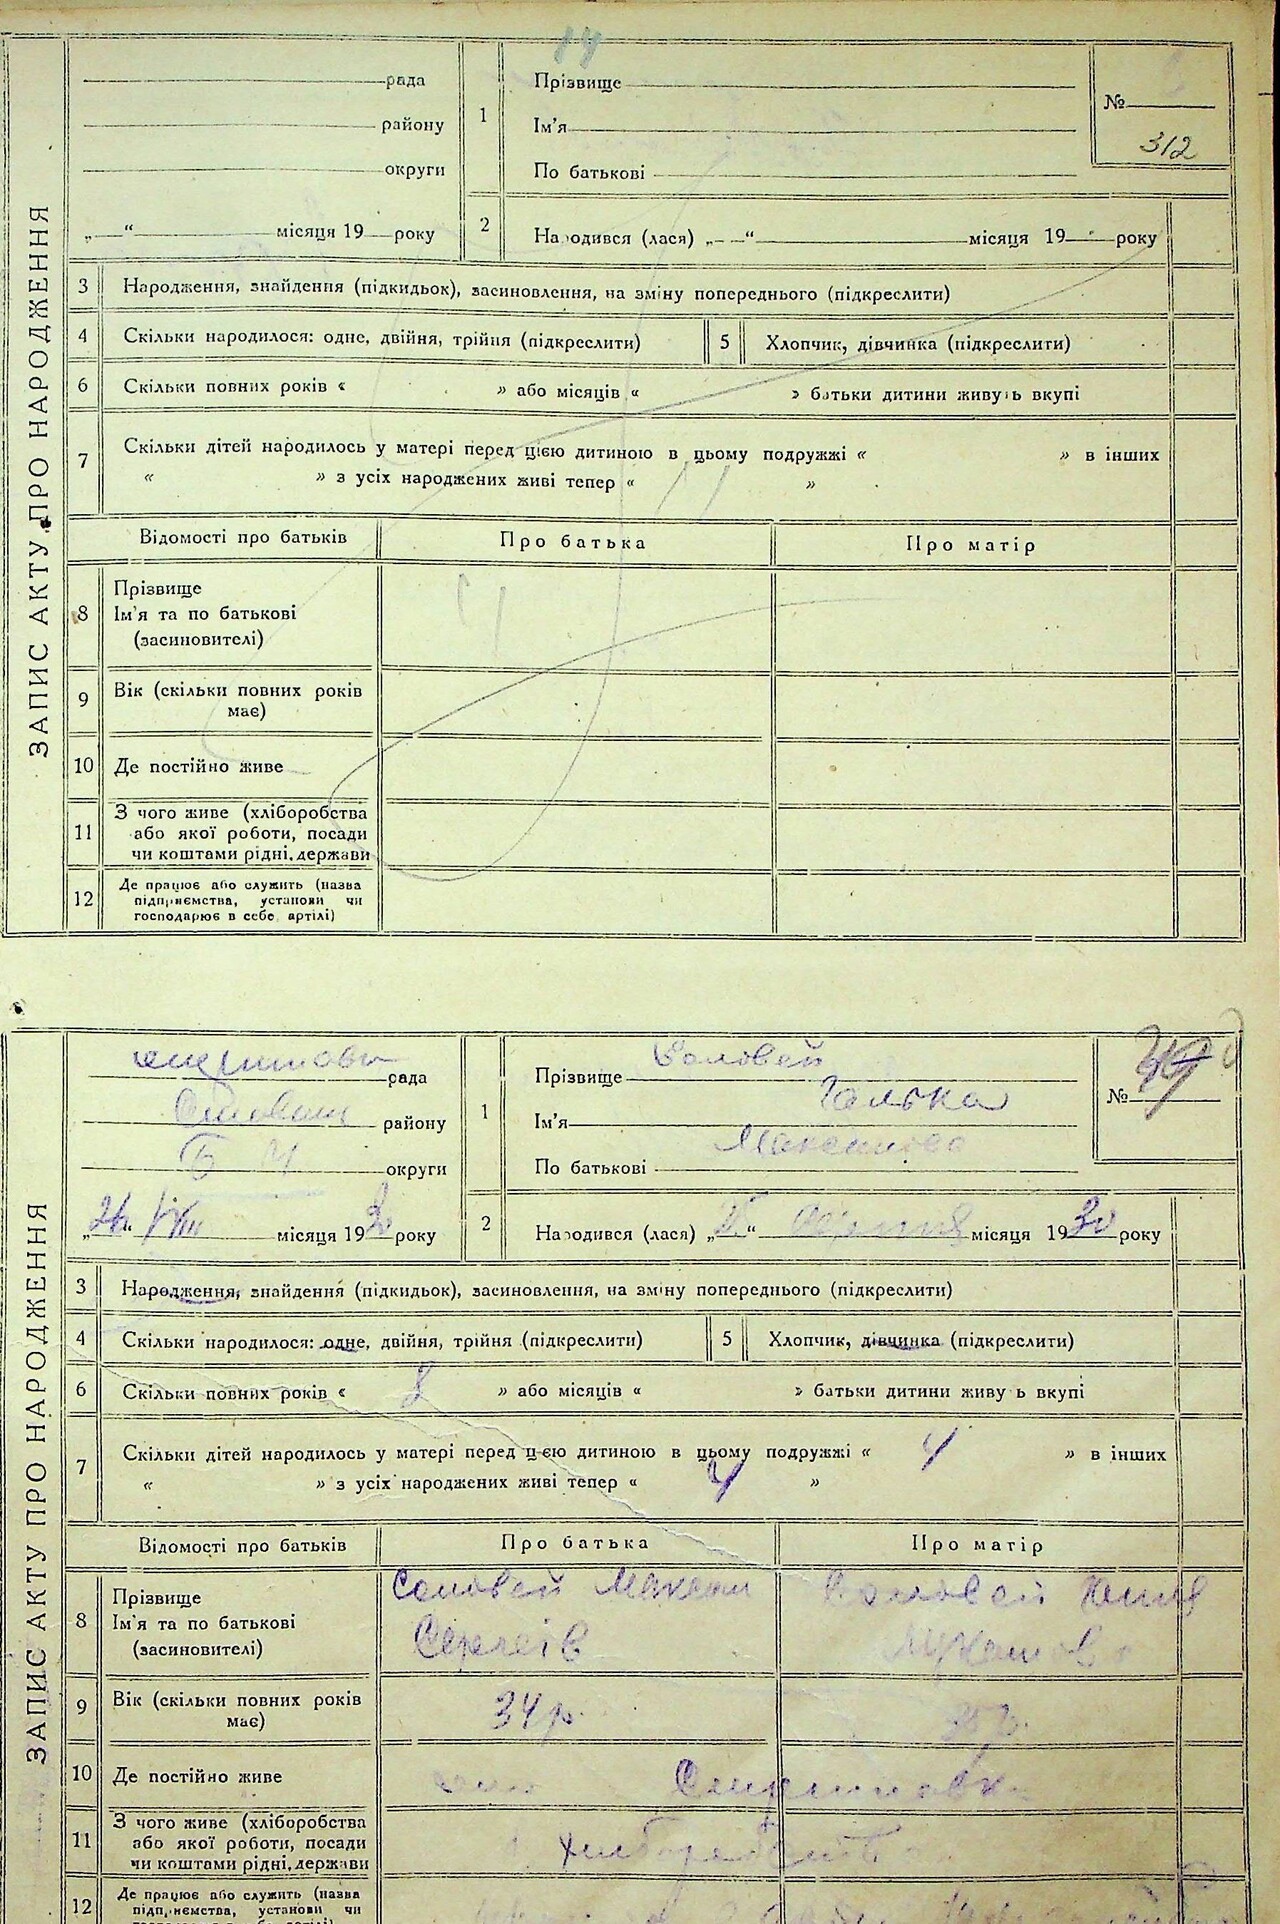 14
ЗАПИС АКТУ ПРО НАРОДЖЕННЯ
рада
району
округи
„ “ місяця 19 року
1
Прізвище
Ім'я
По батькові
№
312
2
Народився (лася) „ “ місяця 19 року
3 Народження, знайдення (підкидьок), засиновлення, на зміну попереднього (підкреслити)
4 Скільки народилося: одне, двійня, трійня (підкреслити) 5 Хлопчик, дівчинка (підкреслити)
6 Скільки повних років « » або місяців « » батьки дитини живуть вкупі
7 Скільки дітей народилось у матері перед цією дитиною в цьому подружжі « » в інших
« » з усіх народжених живі тепер « »
Відомості про батьків Про батька Про матір
8 Прізвище
Ім'я та по батькові
(засиновителі)
9 Вік (скільки повних років
має)
10 Де постійно живе
11 З чого живе (хліборобства
або якої роботи, посади
чи коштами рідні, держави
12 Де працює або служить (назва
підприємства, установи чи
господарює в себе артілі)
ЗАПИС АКТУ ПРО НАРОДЖЕННЯ
рада
району
округи
„ “ VIII місяця 1930 року
1
Прізвище Соловей
Ім'я Галька
По батькові
№
2
Народився (лася) „ “ серпня місяця 1930 року
3 Народження, знайдення (підкидьок), засиновлення, на зміну попереднього (підкреслити)
4 Скільки народилося: одне, двійня, трійня (підкреслити) 5 Хлопчик, дівчинка (підкреслити)
6 Скільки повних років « 8 » або місяців « » батьки дитини живу ь вкупі
7 Скільки дітей народилось у матері перед цією дитиною в цьому подружжі « 4 » в інших
« » з усіх народжених живі тепер « 4 »
Відомості про батьків Про батька Про матір
8 Прізвище
Ім'я та по батькові
(засиновителі)
Соловей Максим
Сергеів
Соловей
9 Вік (скільки повних років
має)
34 р.
10 Де постійно живе
11 З чого живе (хліборобства
або якої роботи, посади
чи коштами рідні, держави
хліборобство
12 Де працює або служить (назва
підприємства, установи чи